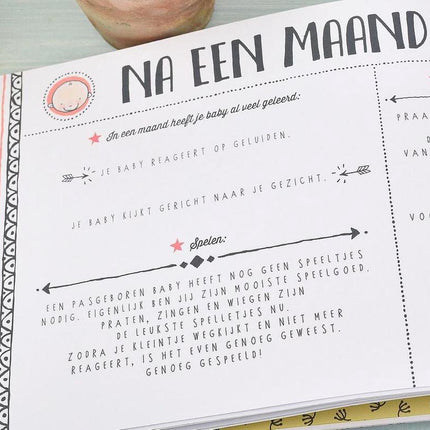 NA EEN MAAND
In een maand heeft je baby al veel geleerd:
JE BABY REAGEERT OP GELUIDEN.
JE BABY KIJKT GERICHT NAAR JE GEZICHT.
Spelen:
EEN PASGEBOREN BABY HEEFT NOG GEEN SPEELTJES
NODIG. EIGENLIJK BEN JIJ ZIJN MOOISTE SPEELGOED.
PRATEN, ZINGEN EN WIEGEN ZIJN
DE LEUKSTE SPELLETJES NU.
ZODRA JE KLEINTJE WEGKIJKT EN NIET MEER
REAGEERT, IS HET EVEN GENOEG GEWEEST.
GENOEG GESPEELD!
PRAA
DE
VAN
VOO